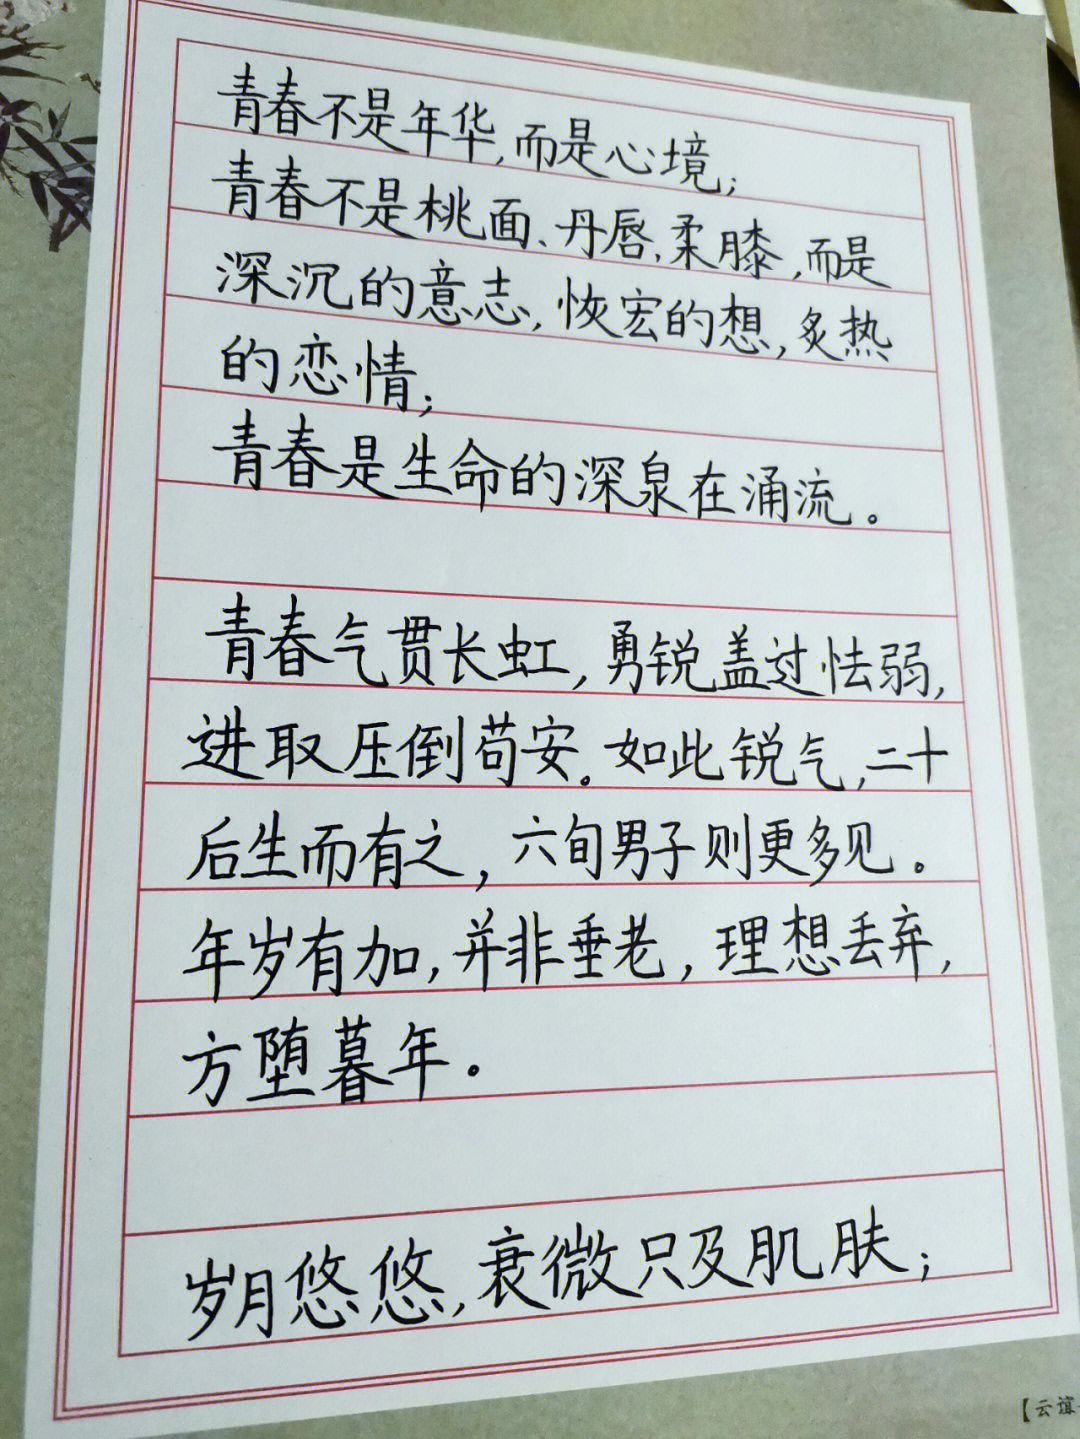 青春不是年华,而是心境;
青春不是桃面、丹唇、柔膝,而是
深沉的意志,恢宏的想,炙热
的恋情;
青春是生命的深泉在涌流。
青春气贯长虹,勇锐盖过怯弱,
进取压倒苟安。如此锐气,二十
后生而有之,六旬男子则更多见。
年岁有加,并非垂老,理想丢弃,
方堕暮年。
岁月悠悠,衰微只及肌肤;
【云谊